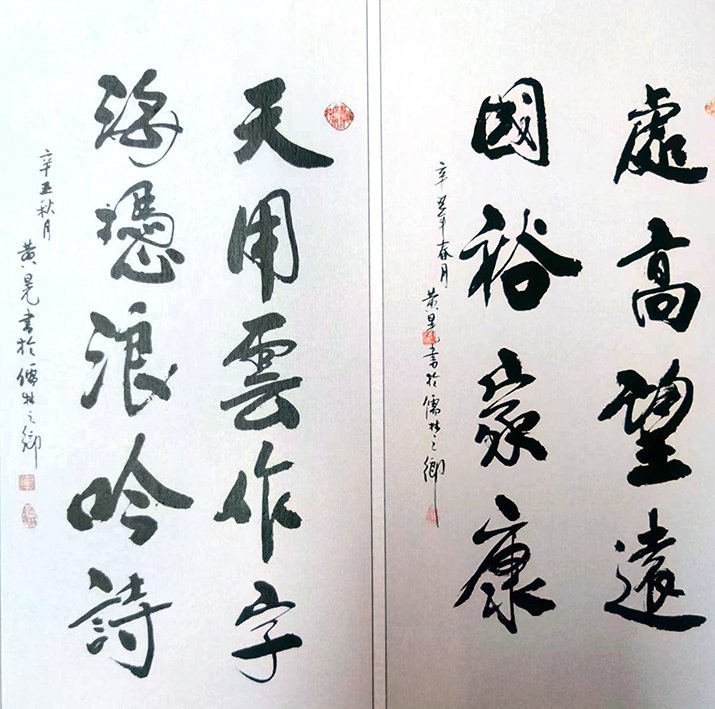 處高望遠
國裕家康
辛丑年春月 黄晃書於儒林之鄉
天用雲作字
海憑浪吟詩
辛丑秋月 黄晃書於儒林之鄉